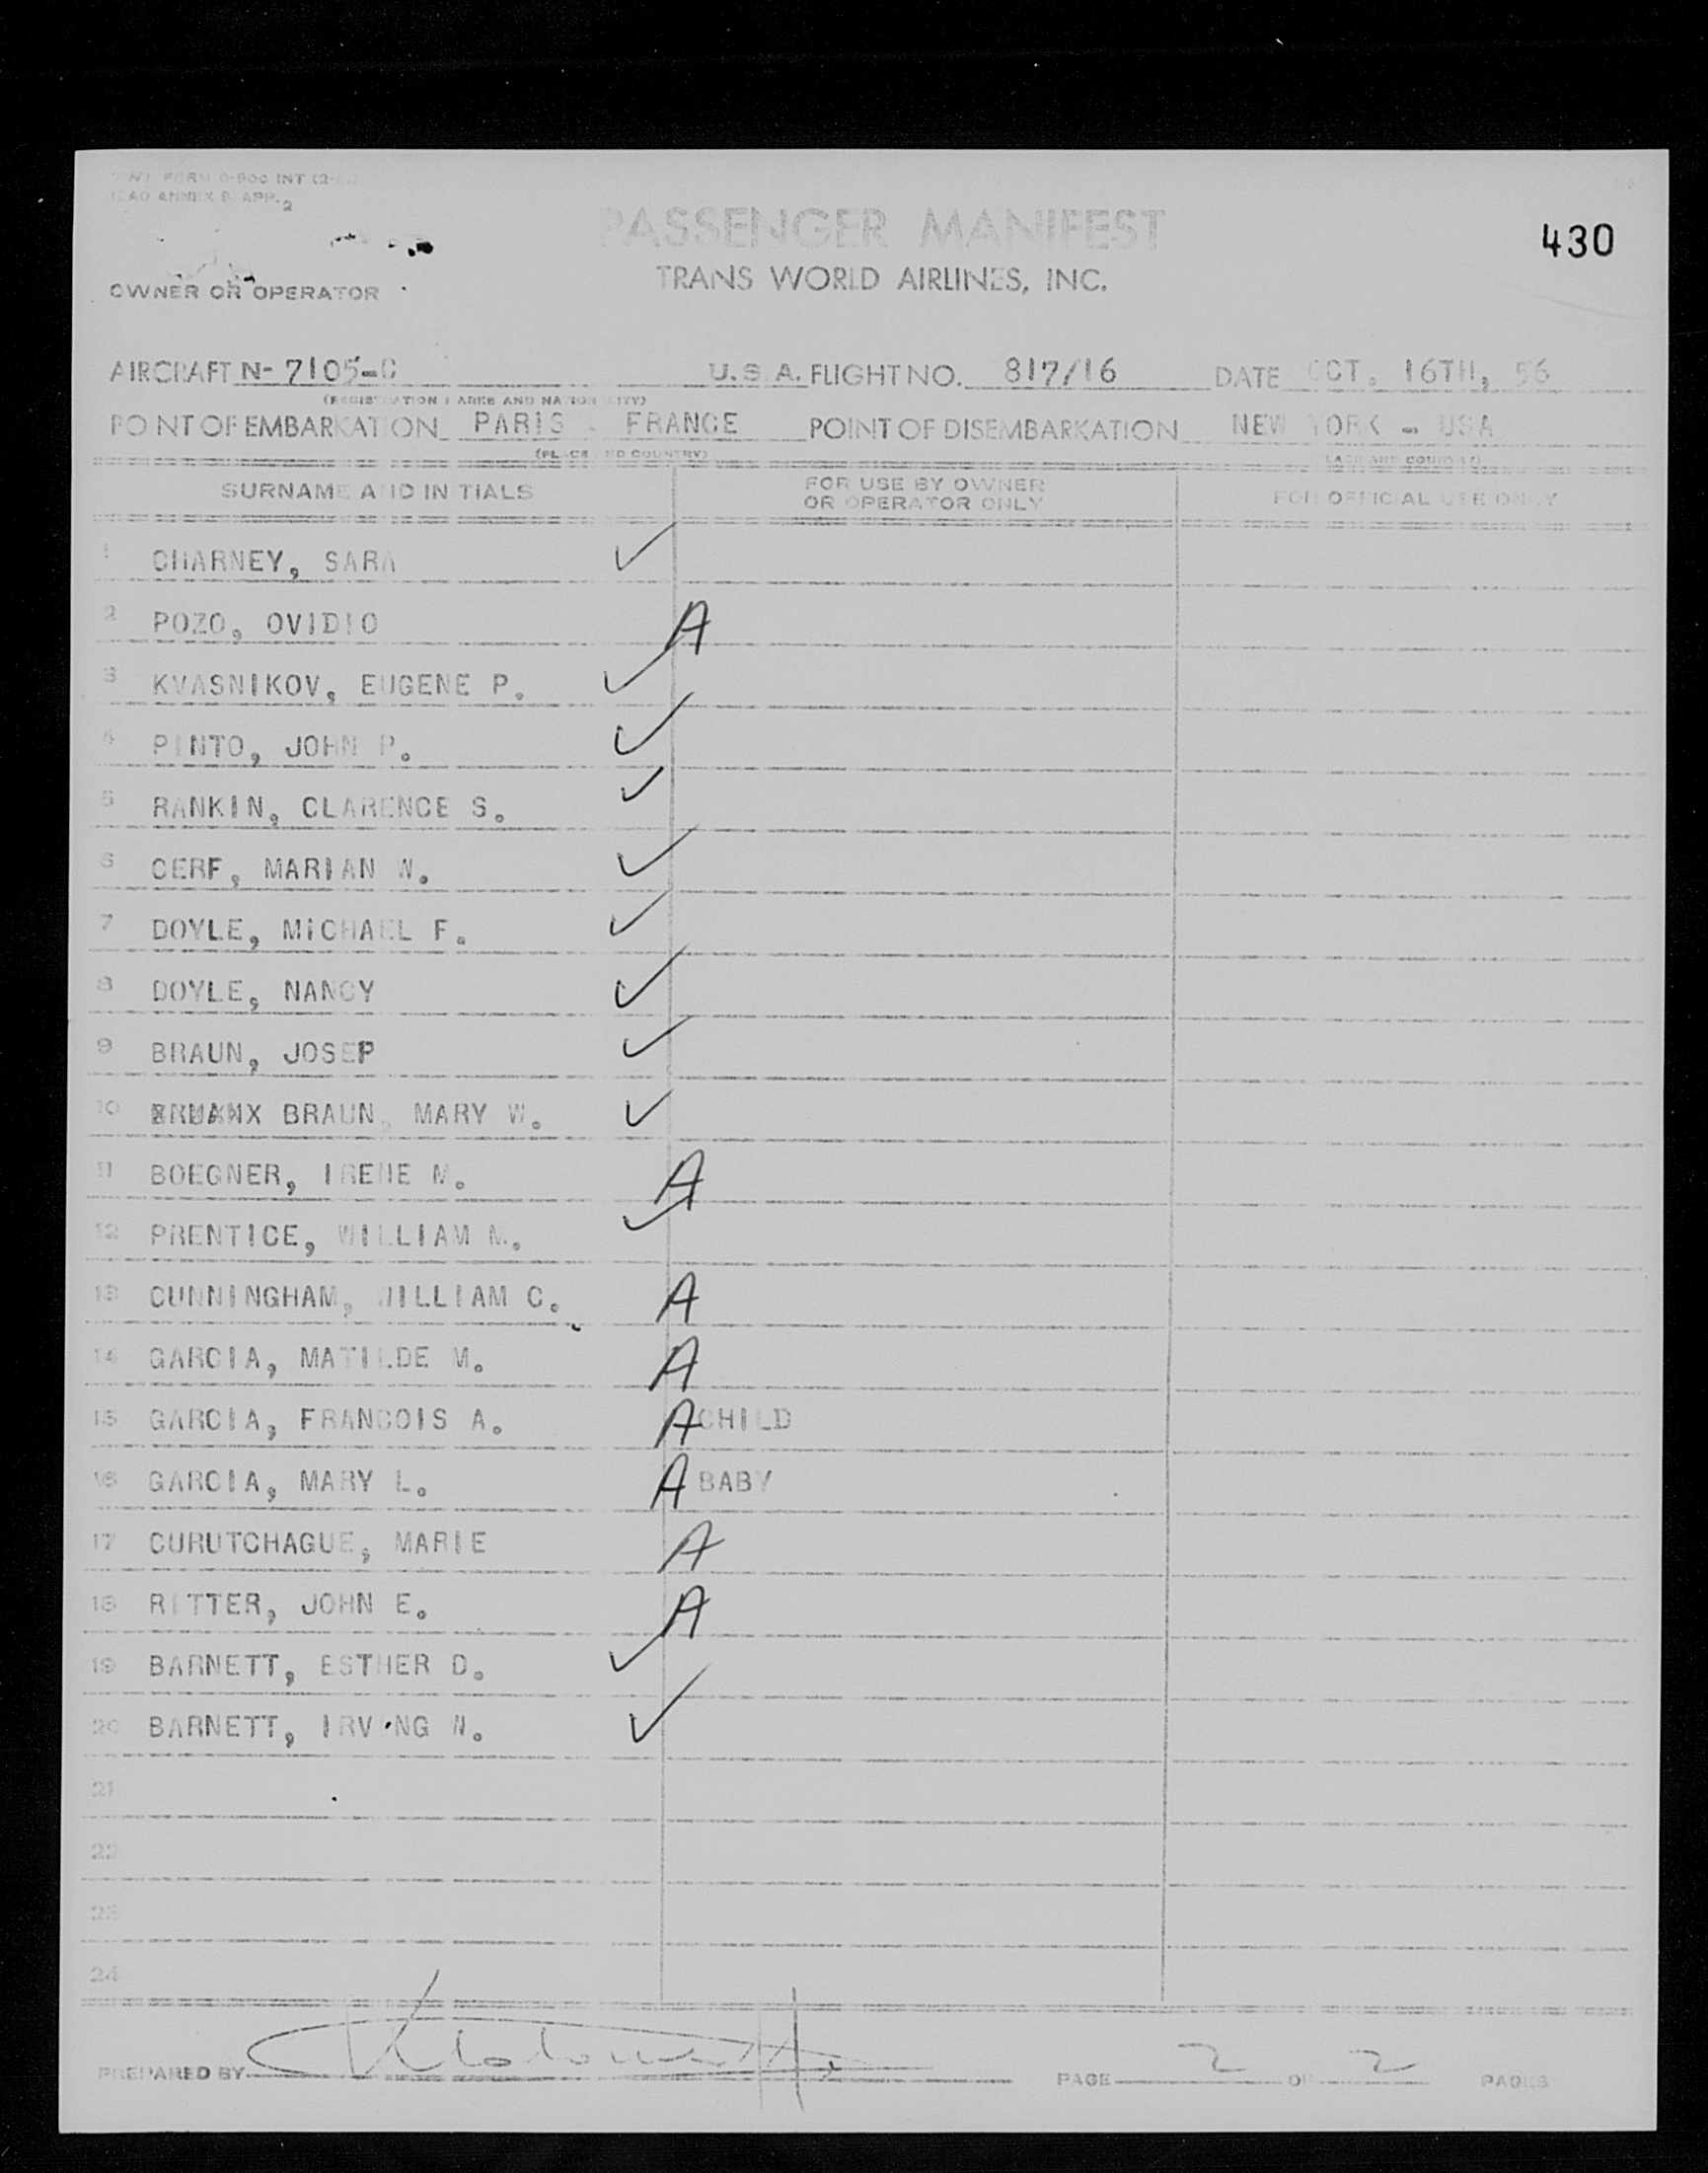 ICAO ANNEX 9, APP. 2
PASSENGER MANIFEST
430
TRANS WORLD AIRLINES, INC.
OWNER OR OPERATOR
AIRCRAFT N- 7105-C U.S.A. FLIGHT NO. 817/16 DATE OCT. 16TH, 56
(REGISTRATION MARKS AND NATIONALITY)
POINT OF EMBARKATION PARIS - FRANCE POINT OF DISEMBARKATION NEW YORK - USA
(PLACE AND COUNTRY) (PLACE AND COUNTRY)
SURNAME AND INITIALS FOR USE BY OWNER OR OPERATOR ONLY FOR OFFICIAL USE ONLY
1 CHARNEY, SARA ✓
2 POZO, OVIDIO A
3 KVASNIKOV, EUGENE P. ✓
4 PINTO, JOHN P. ✓
5 RANKIN, CLARENCE S. ✓
6 CERF, MARIAN W. ✓
7 DOYLE, MICHAEL F. ✓
8 DOYLE, NANCY ✓
9 BRAUN, JOSEP ✓
10 BRAUN, MARY W. ✓
11 BOEGNER, IRENE M. A
12 PRENTICE, WILLIAM M. ✓
13 CUNNINGHAM, WILLIAM C. A
14 GARCIA, MATILDE M. A
15 GARCIA, FRANCOIS A. A CHILD
16 GARCIA, MARY L. A BABY
17 CURUTCHAGUE, MARIE A
18 RITTER, JOHN E. A
19 BARNETT, ESTHER D. ✓
20 BARNETT, IRVING W. ✓
21
22
23
24
PREPARED BY PAGE 2 OF 2 PAGES